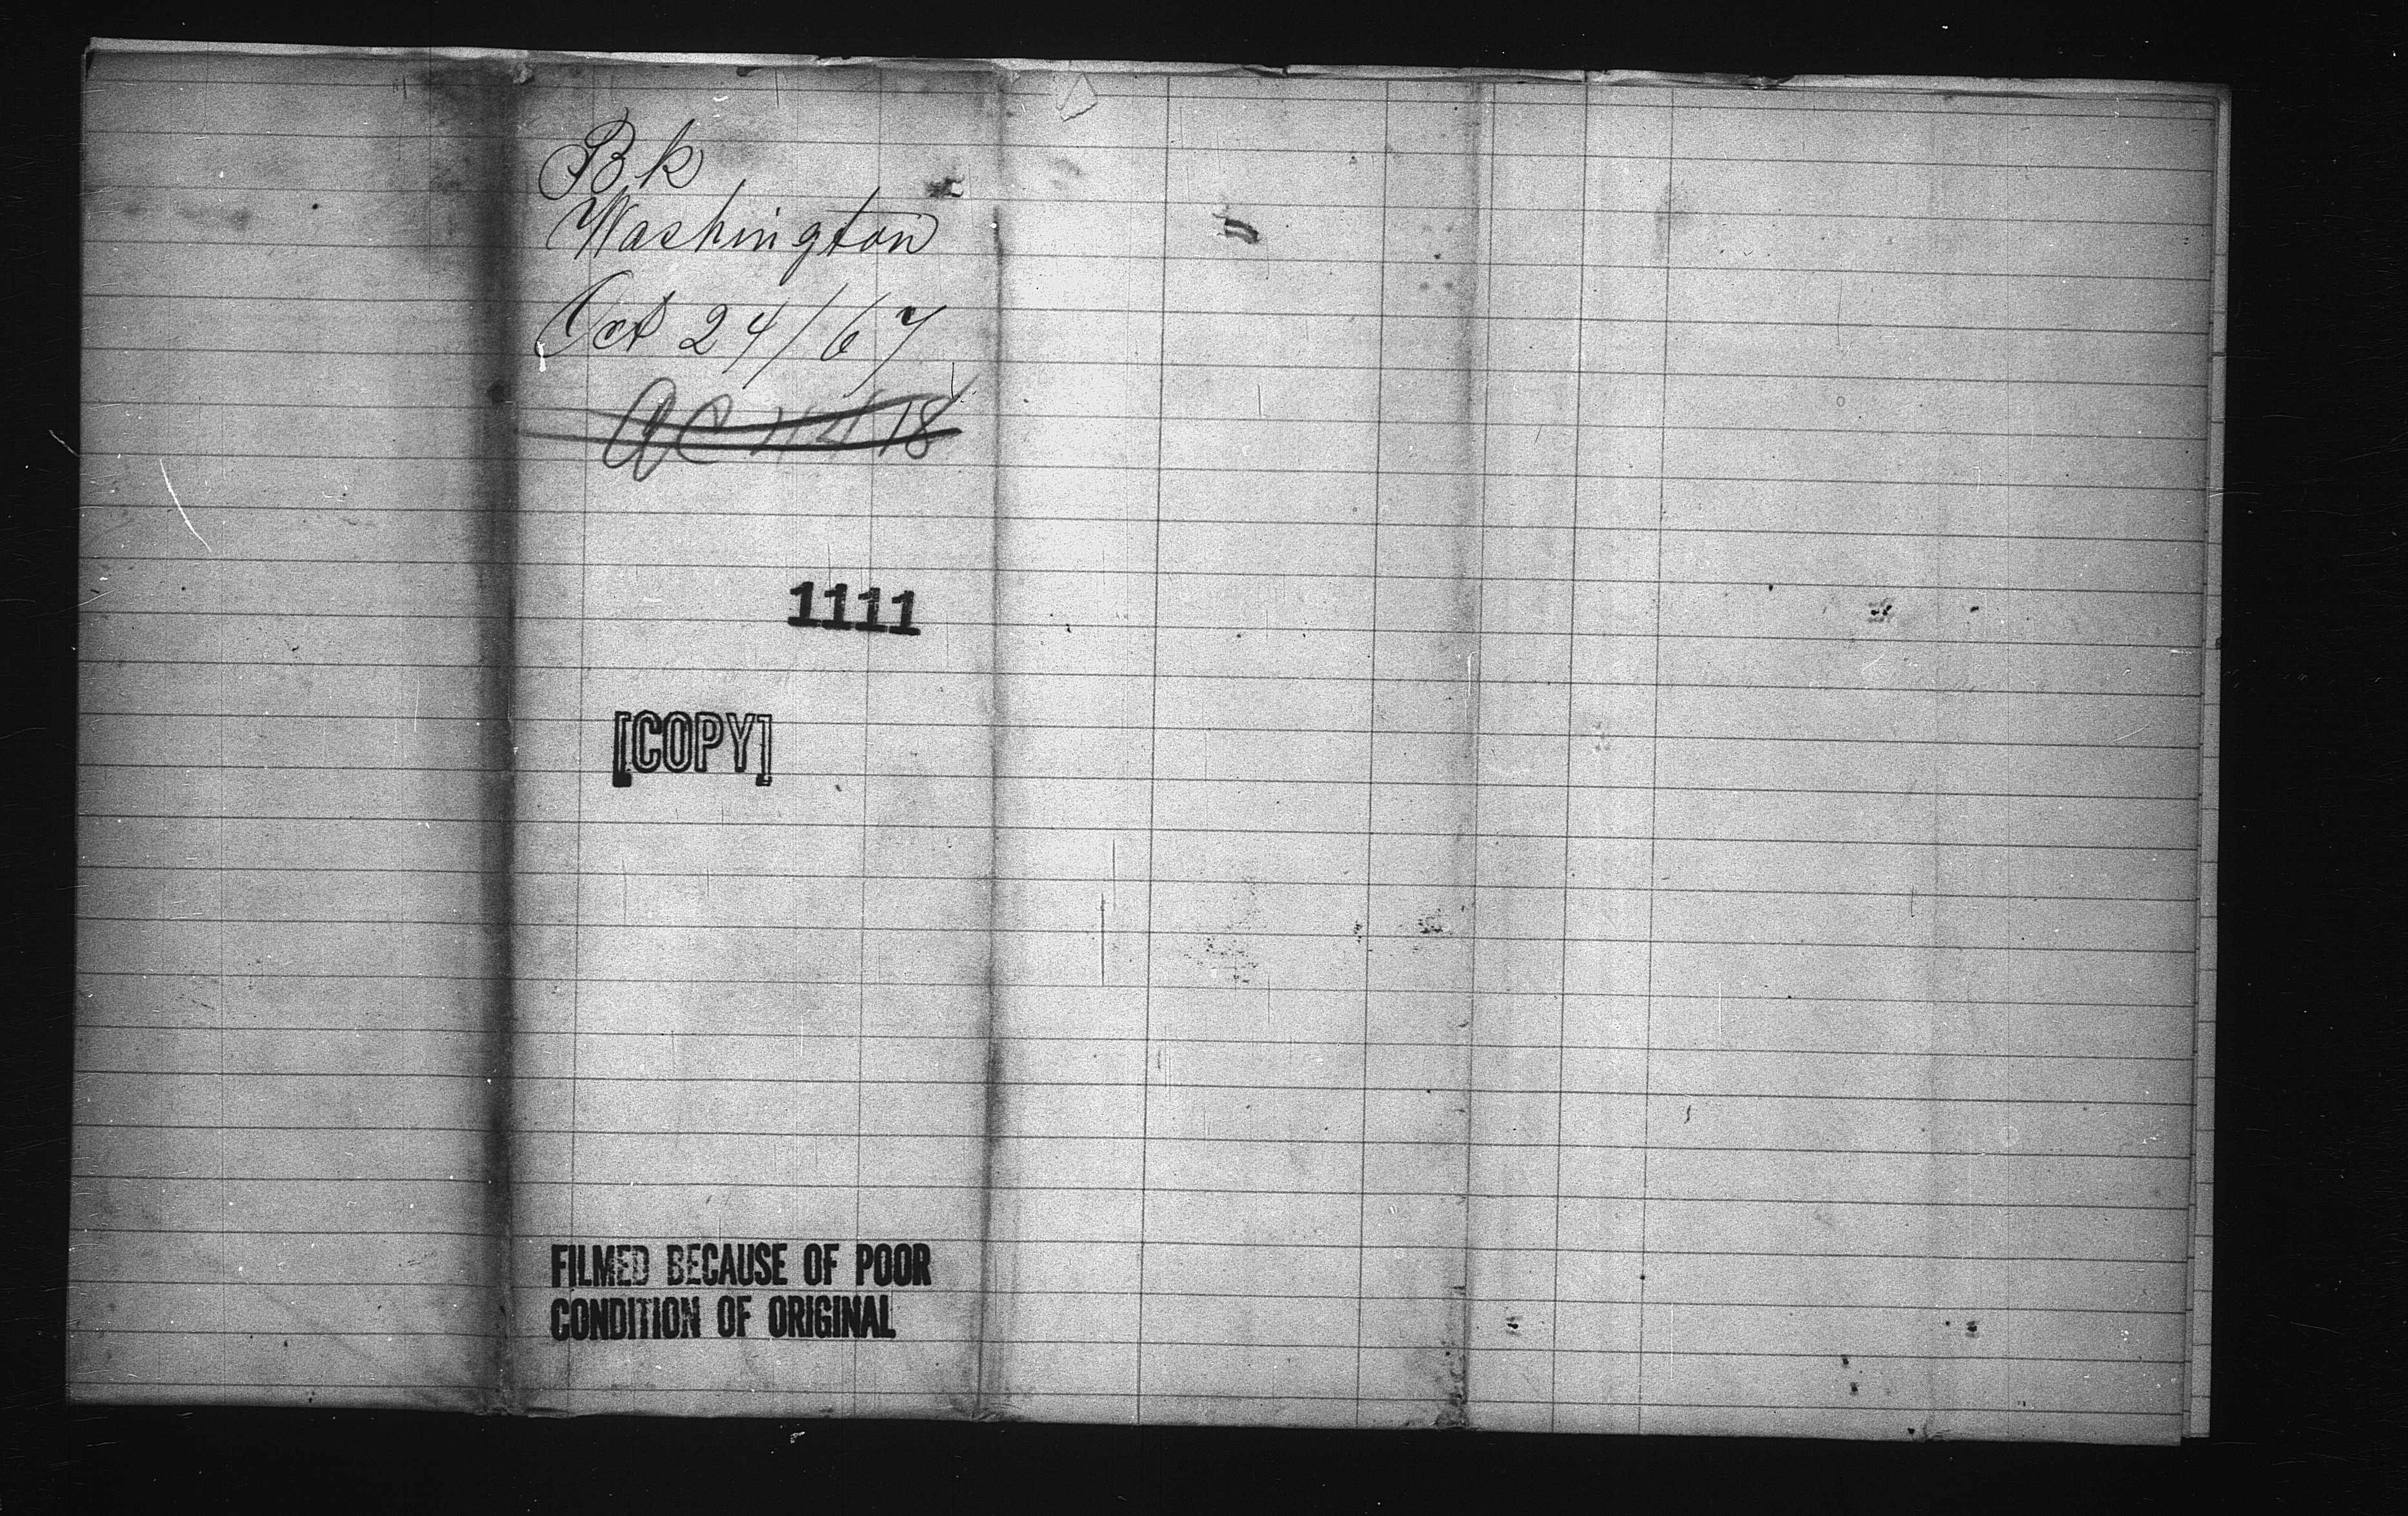 Bk
Washington
Oct 24/67
1111
[COPY]
FILMED BECAUSE OF POOR
CONDITION OF ORIGINAL